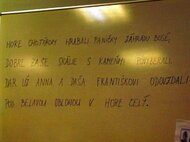 HORE CHOTÁROM HRABALI PANIČKY ZÁHRADU BOSÉ,
DOBRE ZAŠE SKÁLIE S KAMEŇMI PODOBERALI.
DAR UŽ ANNA A DAŠA FRANTIŠKOVI ODOVZDALI
POD BEĽAVOU OBLOHOU V HORE CELÝ.